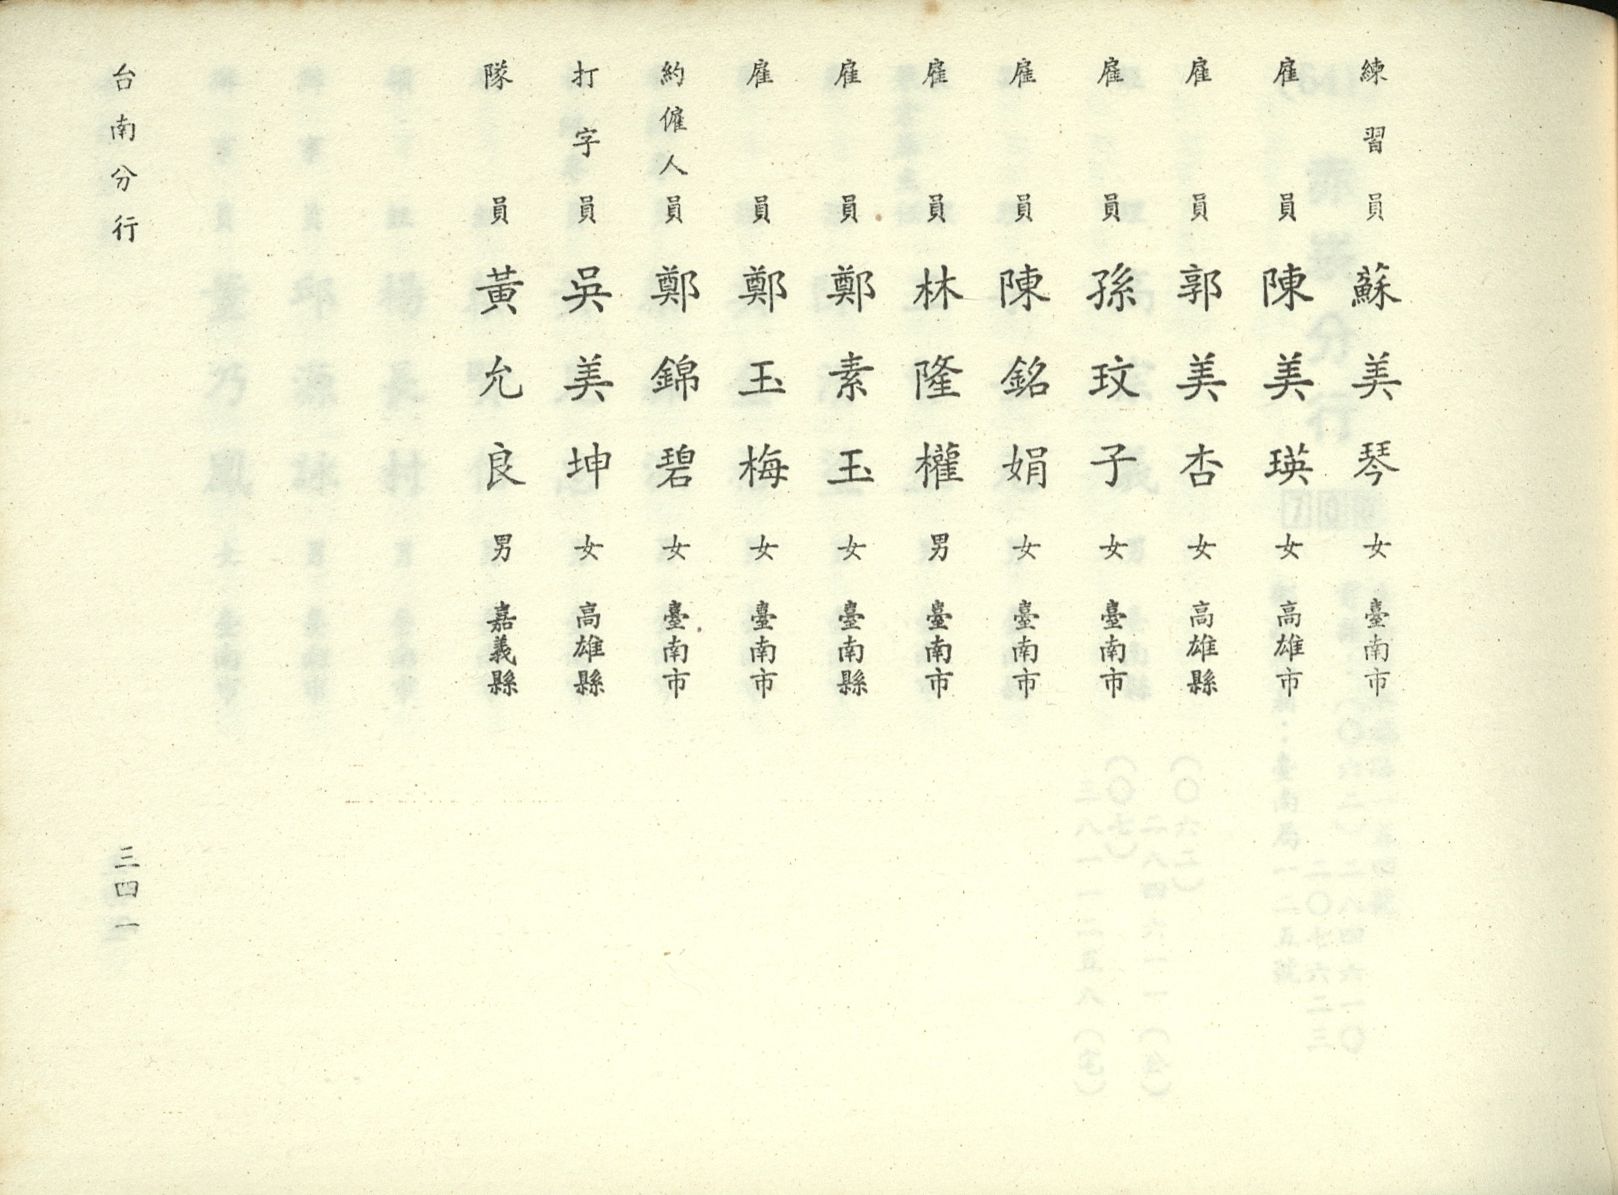 練習員 蘇美琴 女 臺南市
雇員 陳美瑛 女 高雄市
雇員 郭美杏 女 高雄縣
雇員 孫玟子 女 臺南市
雇員 陳銘娟 女 臺南市
雇員 林隆權 男 臺南市
雇員 鄭素玉 女 臺南縣
雇員 鄭玉梅 女 臺南市
約僱人員 鄭錦碧 女 臺南市
打字員 吳美坤 女 高雄縣
隊員 黃允良 男 嘉義縣
台南分行 三四一